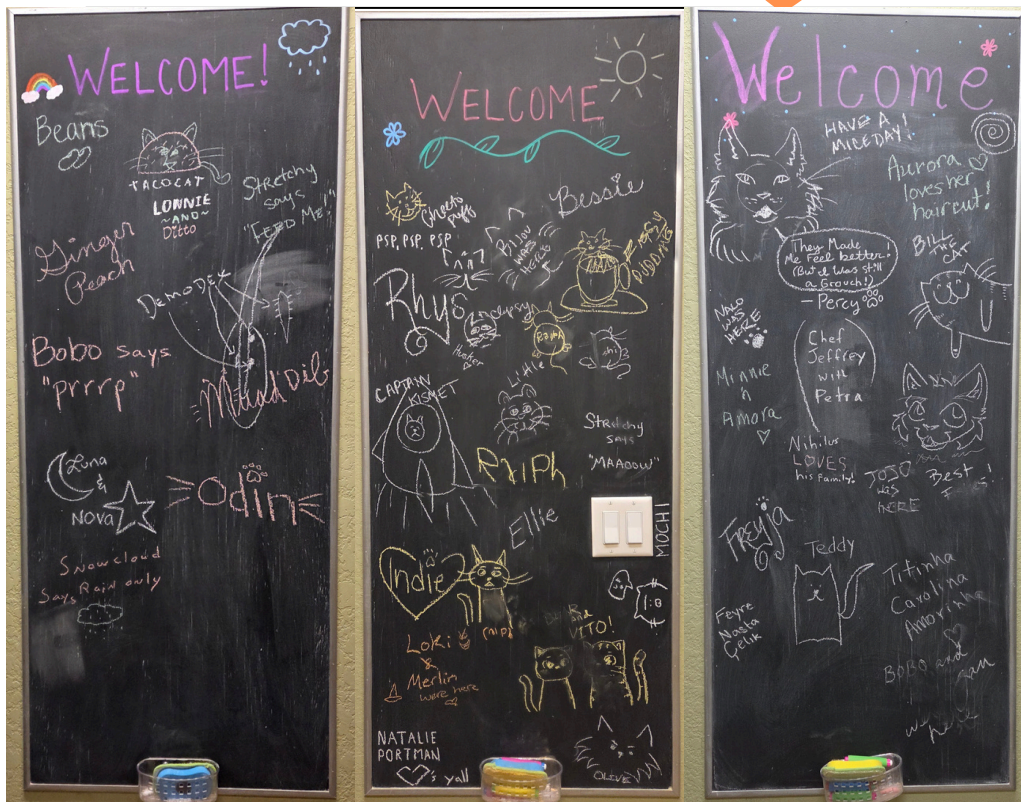 WELCOME!
Beans
TACOCAT
LONNIE
~AND~
Ditto
Stretchy
says
"FEED ME!"
Ginger
Peach
DemoDex
Bobo says
"prrrp"
Luna
&
Nova
Odin
Snowcloud
Says Rain only
WELCOME
Cheeto
puff
Bessie
PSP, PSP, PSP
BIJOU
WAS
HERE
Rhys
Ralph
Little
CAPTAIN
KISMET
Stretchy
says
"MAAOOW"
Ralph
Ellie
MOCHI
Indie
(nip)
Loki
&
Merlin
were here
and
VITO!
NATALIE
PORTMAN
's yall
OLIVE
Welcome
HAVE A
MICEDAY!
Aurora
loves her
haircut!
They Made
Me Feel better!
(But I Was still
a Grouch!)
— Percy
BILL
THE
CAT
NALO
WAS
HERE
Chef
Jeffrey
with
Petra
Minnie
n
Amora
Nihilus
LOVES
his Family!
JOJO
was
HERE
Best
FREYJA
Teddy
Titinha
Carolina
Amorinha
Feyre
Nasta
Çelik
BOBO and